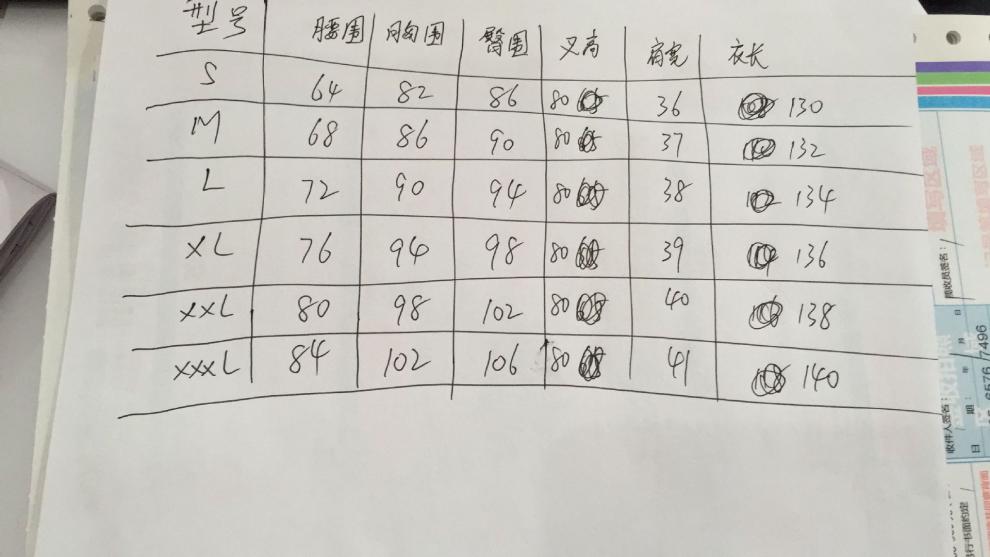 型号 腰围 胸围 臀围 叉高 肩宽 衣长
S 64 82 86 80 36 130
M 68 86 90 80 37 132
L 72 90 94 80 38 134
XL 76 94 98 80 39 136
XXL 80 98 102 80 40 138
XXXL 84 102 106 80 41 140
填写区域
揽收员签名：
收件人签名：
年 月 日
6576 7496